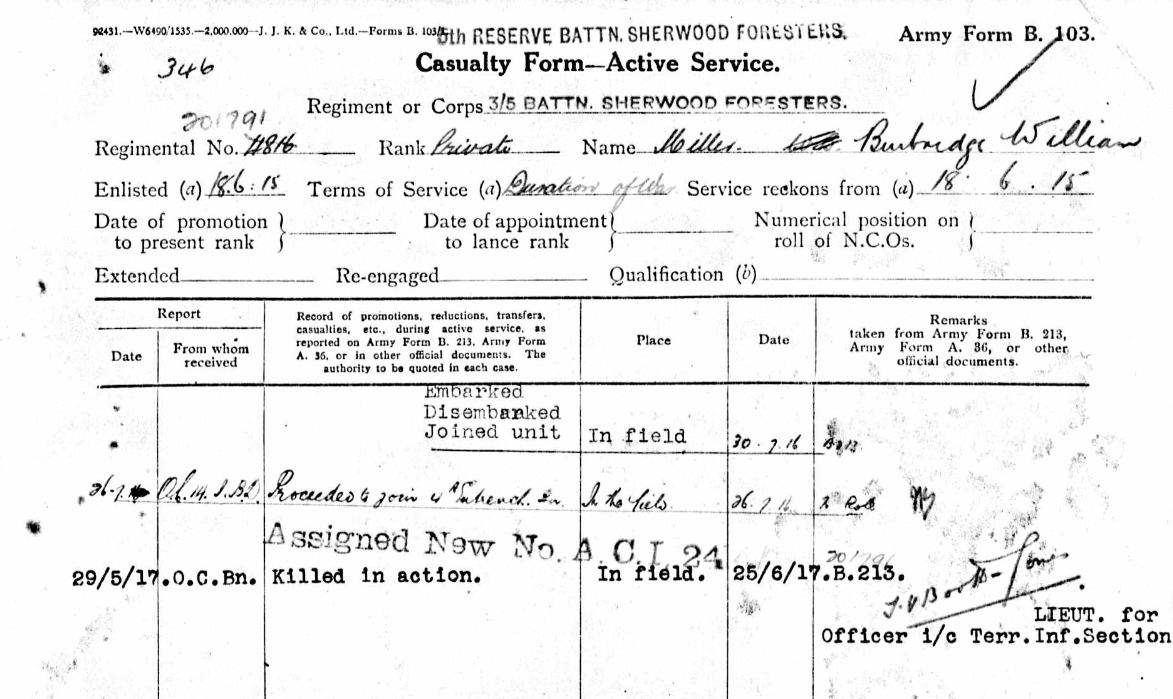 92431.—W6490/1535.—2,000,000—J. J. K. & Co., Ltd.—Forms B. 103/5
5th RESERVE BATTN. SHERWOOD FORESTERS.
Army Form B. 103.
346
Casualty Form—Active Service.
Regiment or Corps 3/5 BATTN. SHERWOOD FORESTERS.
201791
Regimental No. 4816 Rank Private Name Miller Burbredge William
Enlisted (a) 18.6.15 Terms of Service (a) Duration of War Service reckons from (a) 18 6.15
Date of promotion to present rank
Date of appointment to lance rank
Numerical position on roll of N.C.Os.
Extended Re-engaged Qualification (b)
Report
Date
From whom received
Record of promotions, reductions, transfers,
casualties, etc., during active service, as
reported on Army Form B. 213, Army Form
A. 36, or in other official documents. The
authority to be quoted in each case.
Place
Date
Remarks
taken from Army Form B. 213,
Army Form A. 36, or other
official documents.
Embarked
Disembanked
Joined unit In field 30.7.16 B213
26.7.16 Proceeded to join In the field 26.7.16 Roll
Assigned New No. A.C.I. 24
29/5/17.O.C.Bn. Killed in action. In field. 25/6/17.B.213.
LIEUT. for
Officer i/c Terr.Inf.Section